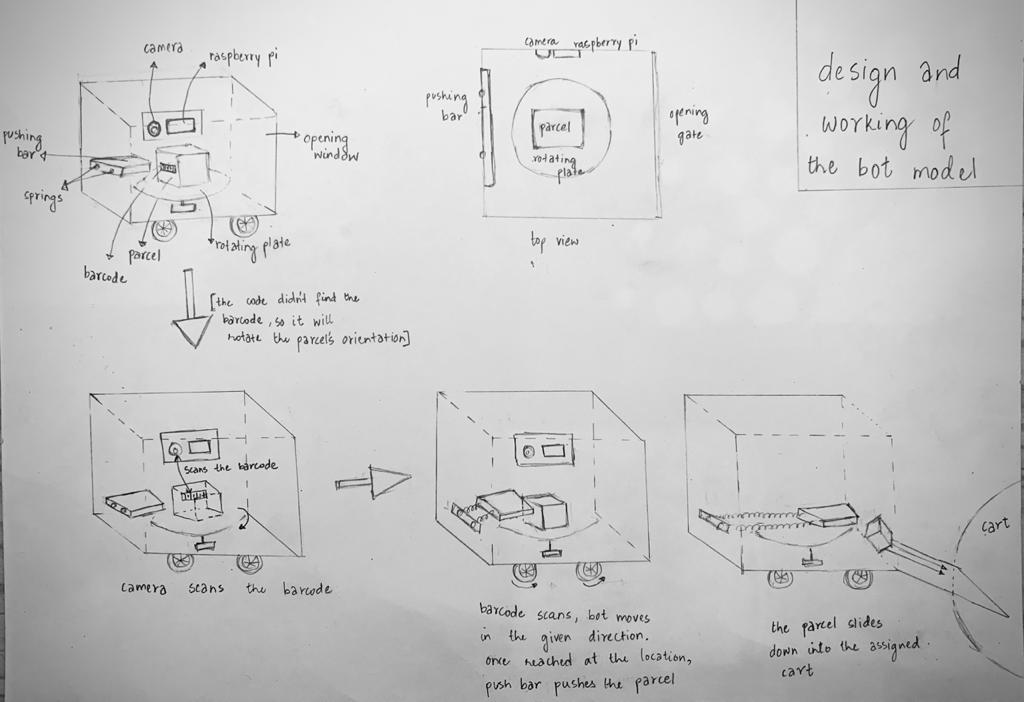 camera
raspberry pi
pushing
bar
springs
opening
window
barcode
parcel
rotating plate
camera raspberry pi
pushing
bar
parcel
rotating
plate
opening
gate
top view
design and
working of
the bot model
[the code didn't find the
barcode, so it will
rotate the parcel's orientation]
scans the barcode
camera scans the barcode
barcode scans, bot moves
in the given direction.
once reached at the location,
push bar pushes the parcel
cart
the parcel slides
down into the assigned.
cart